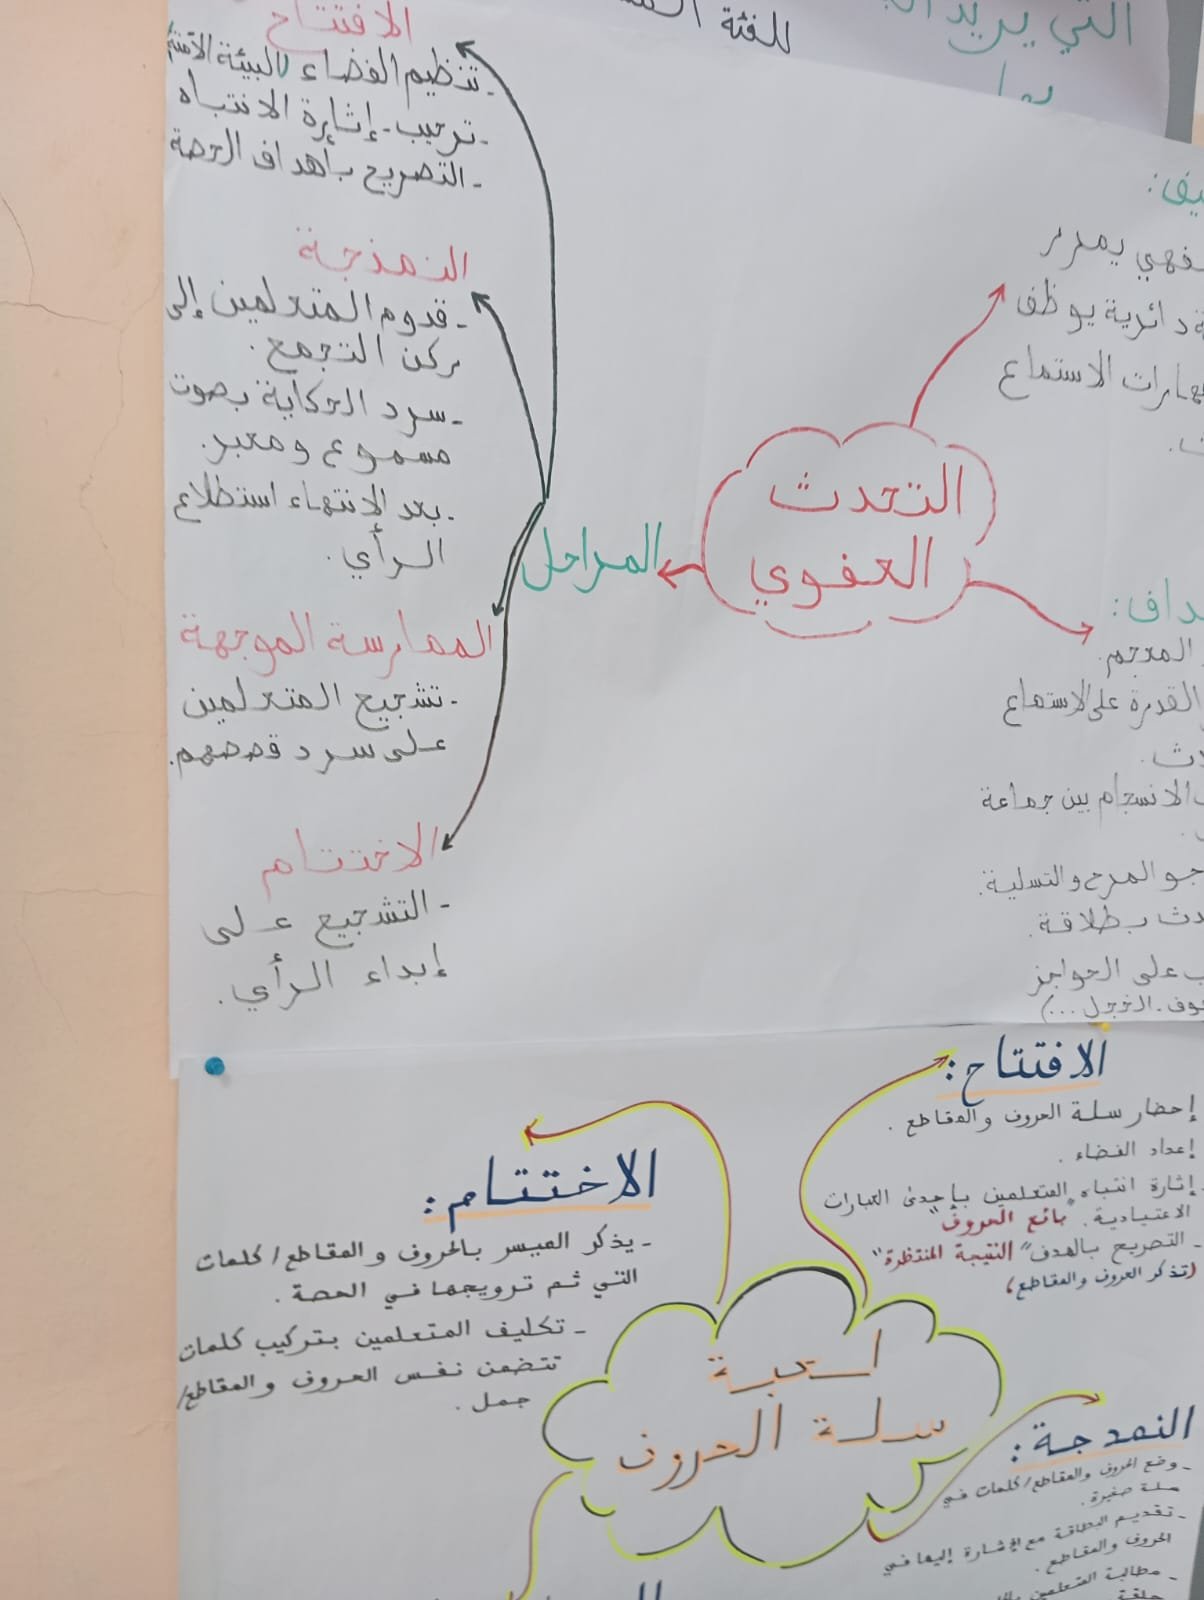 التي يريد
بها
للفئة
التحدث
العفوي
يمرر
دائرية يوظف
مهارات الاستماع
المعجم.
القدرة على الاستماع
الانسجام بين جماعة
جو المرح والتسلية.
بطلاقة.
على الحواجز
الخجل...)
المراحل
الافتتاح
- تنظيم الفضاء / البيئة
- ترحيب - إثارة الانتباه
- التصريح بأهداف الحصة
النمذجة
- قدوم المتعلمين إلى
ركن التجمع.
- سرد الحكاية بصوت
مسموع ومعبر.
- بعد الانتهاء استطلاع
الرأي.
الممارسة الموجهة
- تشجيع المتعلمين
على سرد قصصهم.
الاختتام
- التشجيع على
إبداء الرأي.
لعبة
سلة الحروف
الافتتاح:
إحضار سلة الحروف والمقاطع.
إعداد الفضاء.
- إثارة انتباه المتعلمين بإحدى العبارات
الاعتيادية. "بائع الحروف"
- التصريح بالهدف "النتيجة المنتظرة"
(تذكر الحروف والمقاطع)
النمدجة:
- وضع الحروف والمقاطع/كلمات في
سلة صغيرة.
- تقديم البطاقة مع الإشارة إليها في
الحروف والمقاطع.
- مطالبة المتعلمين
حلقة
الاختتام:
- يذكر الميسر بالحروف والمقاطع/كلمات
التي ثم ترويجها في الحصة.
- تكليف المتعلمين بتركيب كلمات
تتضمن نفس الحروف والمقاطع/
جمل.